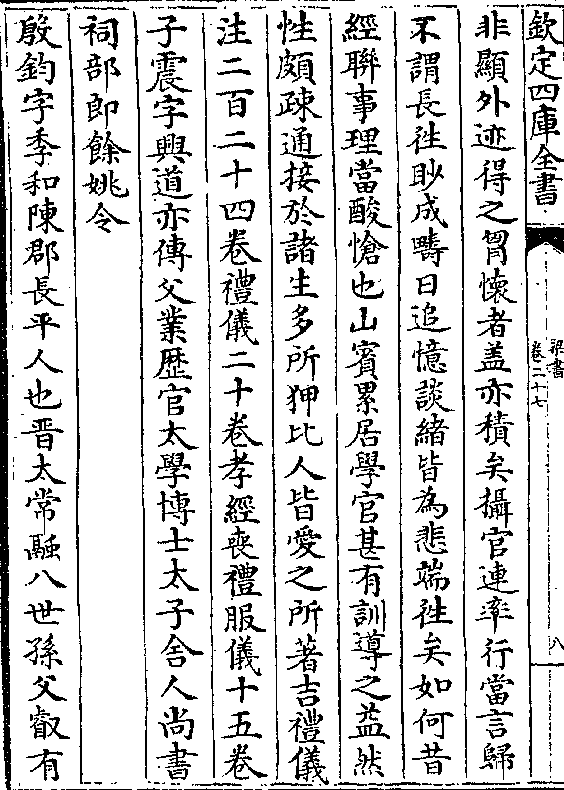 欽定四庫全書
梁書
卷二十七
八
非顯外迹得之胷懷者盖亦積矣攝官連率行當言歸
不謂長徃眇成疇日追憶談緒皆為悲端徃矣如何昔
經聨事理當酸愴也山賓累居學官甚有訓導之益然
性頗疎通接於諸生多所狎比人皆愛之所著吉禮儀
注二百二十四卷禮儀二十卷孝經喪禮服儀十五卷
子震字興道亦傳父業歴官太學博士太子舍人尚書
祠部郎餘姚令
殷鈞字季和陳郡長平人也晋太常融八世孫父叡有